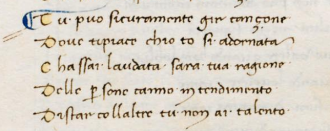 Tu puo sicuramente gir canzone
Doue tipiace chio to si adornata
Chassar laudata sara tua ragione
Delle persone canno intendimento
Distar collaltre tu non ai talento.